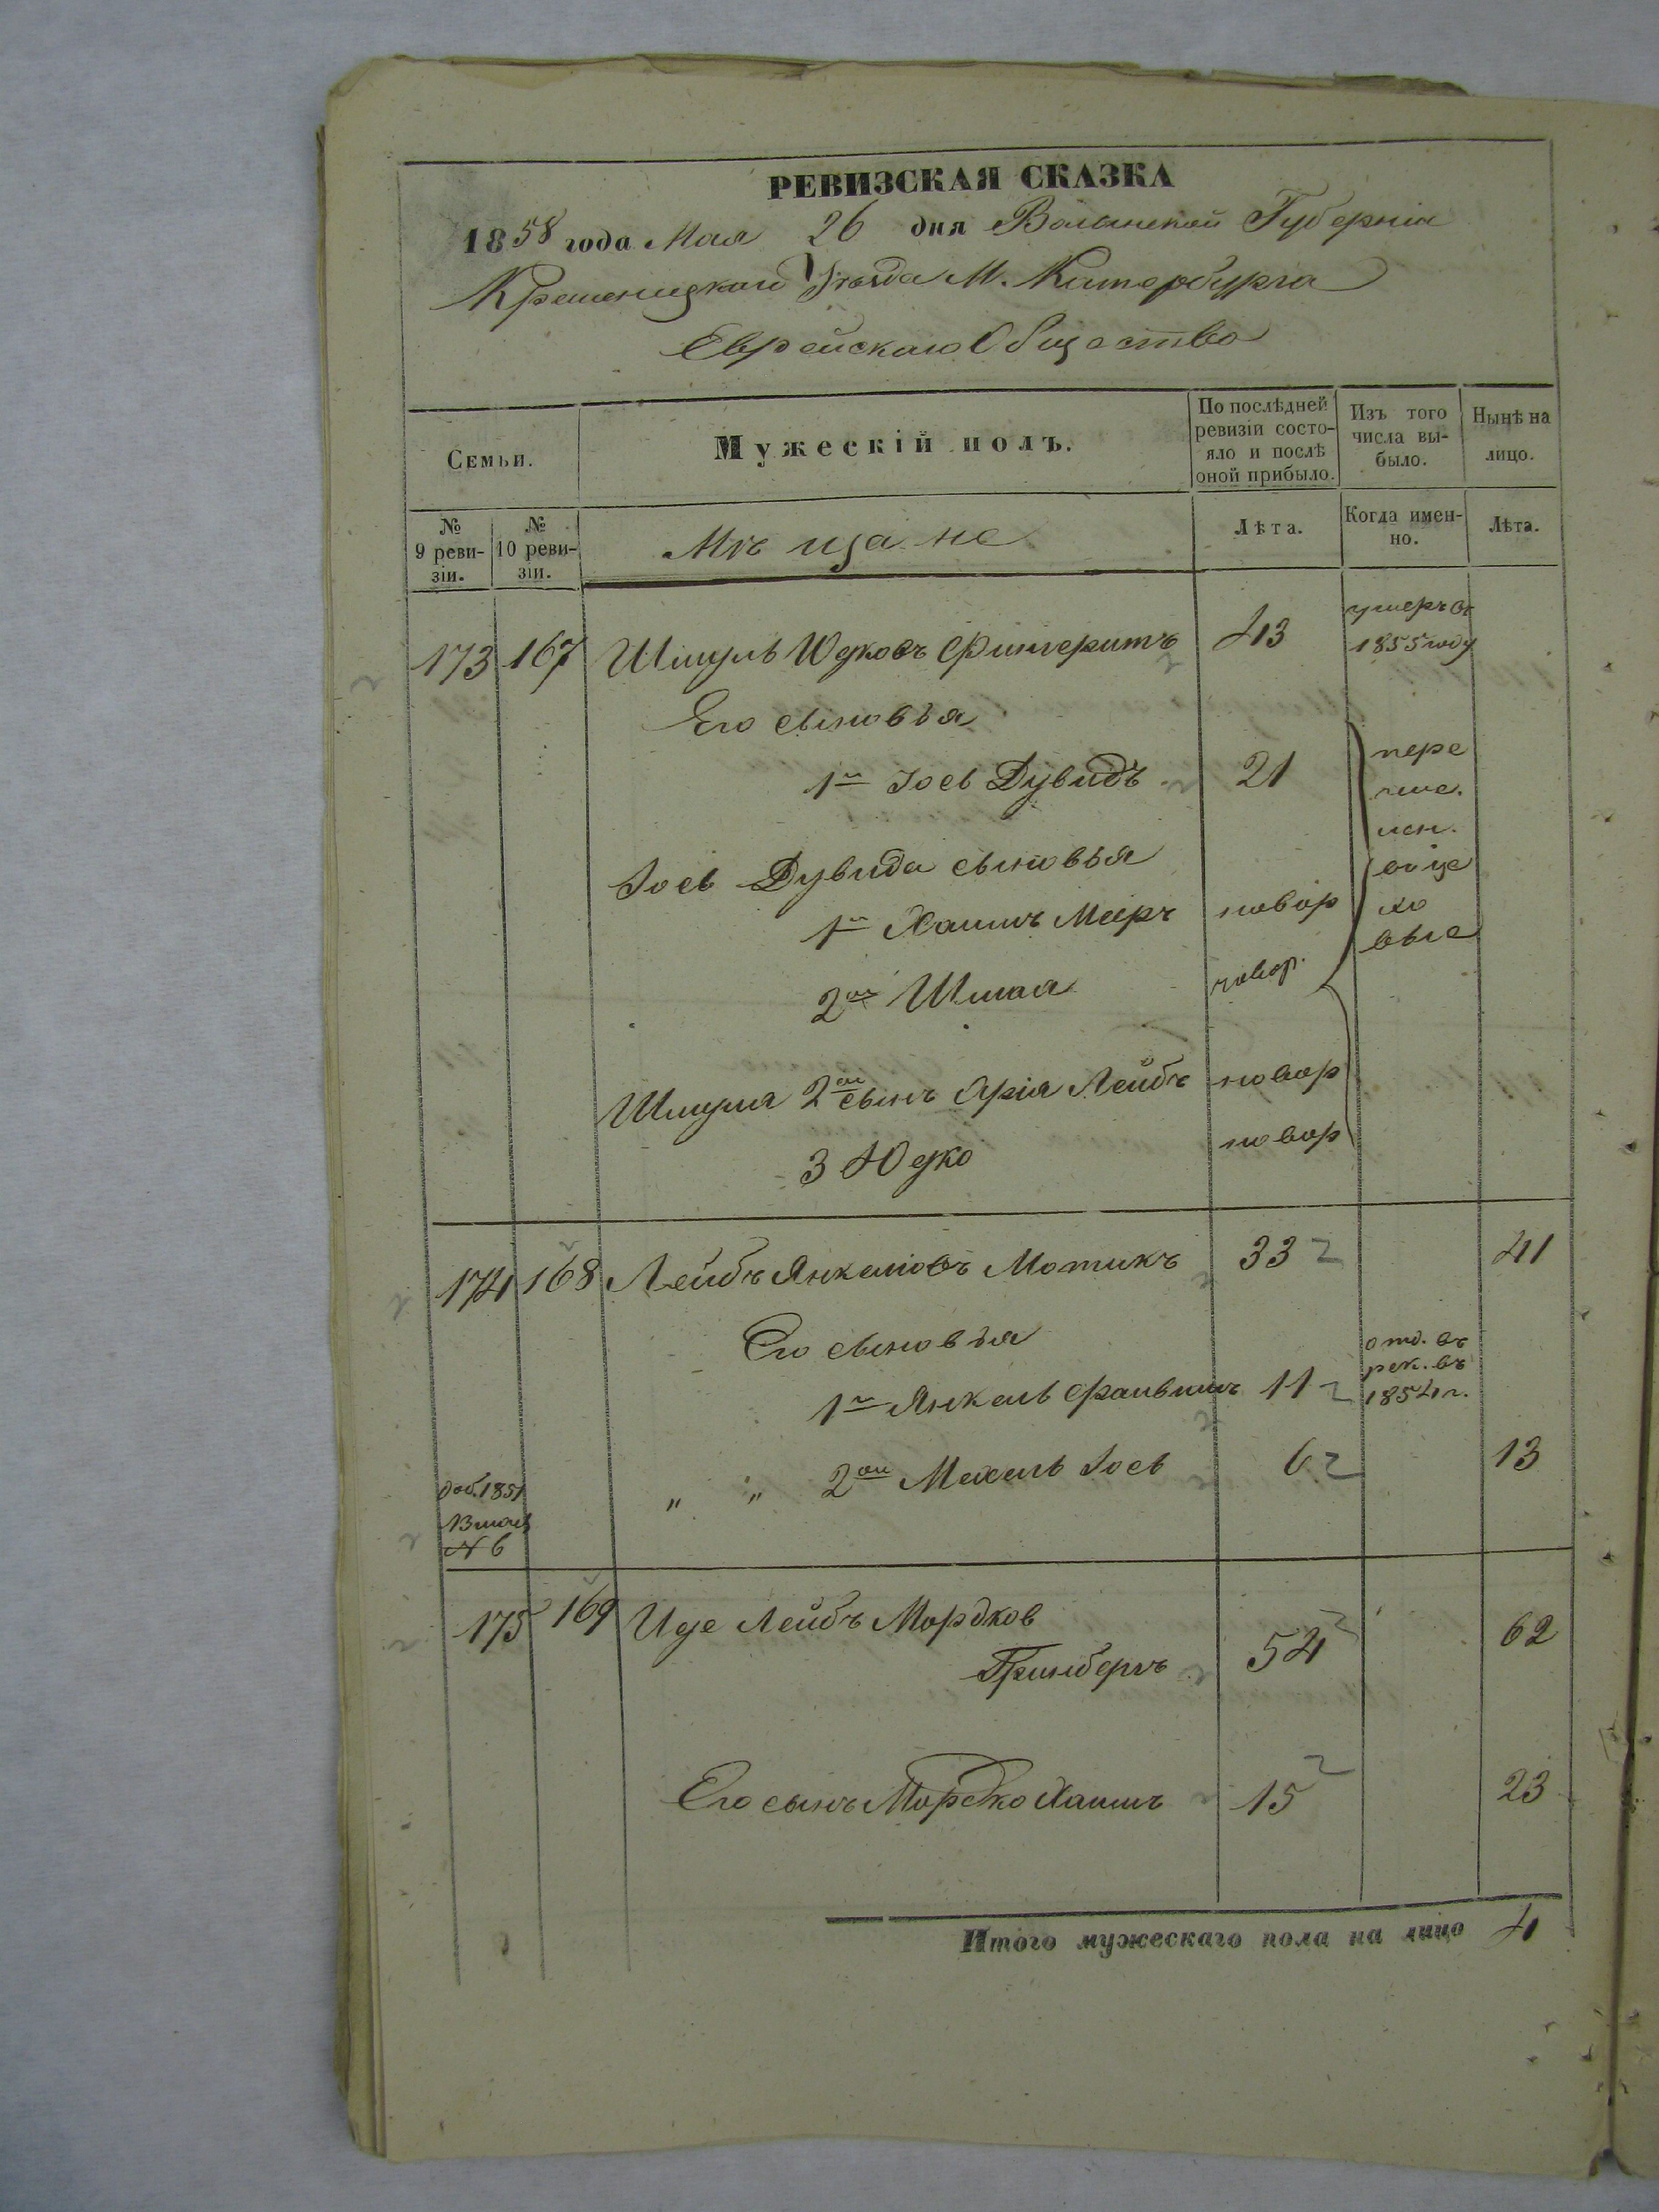 РЕВИЗСКАЯ СКАЗКА
1858 года Мая 26 дня Волынской Губерніи
Кременецкаго Уѣзда М. Катербурга
Еврейскаго Общества
Семьи.
Мужескій полъ.
По послѣдней ревизіи состо-
яло и послѣ
оной прибыло.
Изъ того
числа вы-
было.
Нынѣ на
лицо.
№
9 реви-
зіи.
№
10 реви-
зіи.
Мѣщане
Лѣта.
Когда имен-
но.
Лѣта.
173 167 Шмуль Юдковъ 43 умеръ въ
1855 году
Его сыновья
1й Іось Дувидъ 21
пере
чис.
лен.
въ це
хо
вые
Іось Дувида сыновья
1й Хаимъ Мееръ новор
2ой Шмая новор.
Шмуля 2ой сынъ Арія Лейбъ новор
3 Юдко новор
174 168 Лейбъ Янкелiовъ Мотикъ 33 41
Его сыновья
1й Янкель Фаивишъ 11 отд. въ
рек. въ
1854 г.
доб. 1851
№ 6
" " 2ой Мехель Іось 6 13
175 169 Иде Лейбъ Мордков
Гринбергъ 54 62
Его сынъ Мордко Хаимъ 15 23
Итого мужескаго пола на лицо 4